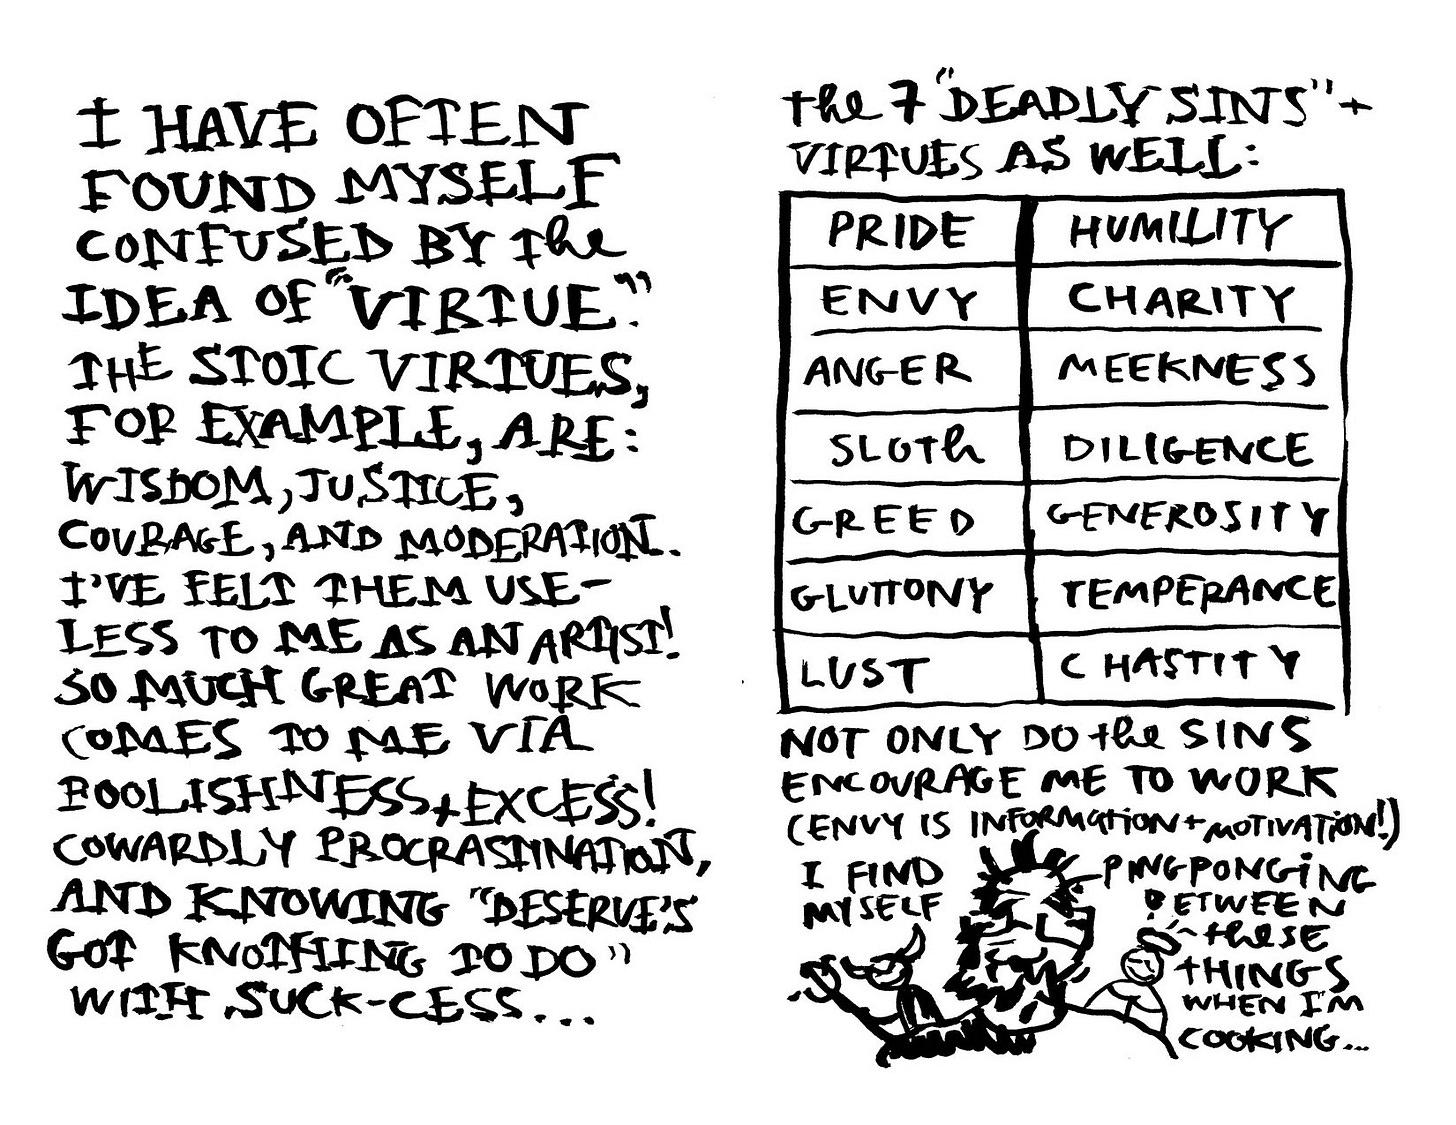 I HAVE OFTEN
FOUND MYSELF
CONFUSED BY the
IDEA OF "VIRTUE."
THE STOIC VIRTUES,
FOR EXAMPLE, ARE:
WISDOM, JUSTICE,
COURAGE, AND MODERATION.
I'VE FELT THEM USE-
LESS TO ME AS AN ARTIST!
SO MUCH GREAT WORK
COMES TO ME VIA
FOOLISHNESS + EXCESS!
COWARDLY PROCRASTINATION,
AND KNOWING "DESERVE'S
GOT KNOTHING TO DO"
WITH SUCK-CESS...
the 7 "DEADLY SINS" +
VIRTUES AS WELL:
PRIDE HUMILITY
ENVY CHARITY
ANGER MEEKNESS
SLOTh DILIGENCE
GREED GENEROSITY
GLUTTONY TEMPERANCE
LUST CHASTITY
NOT ONLY DO the SINS
ENCOURAGE ME TO WORK
(ENVY IS INFORMATION + MOTIVATION!)
I FIND
MYSELF
PINGPONGING
BETWEEN
theSE
THINGS
WHEN I'M
COOKING...